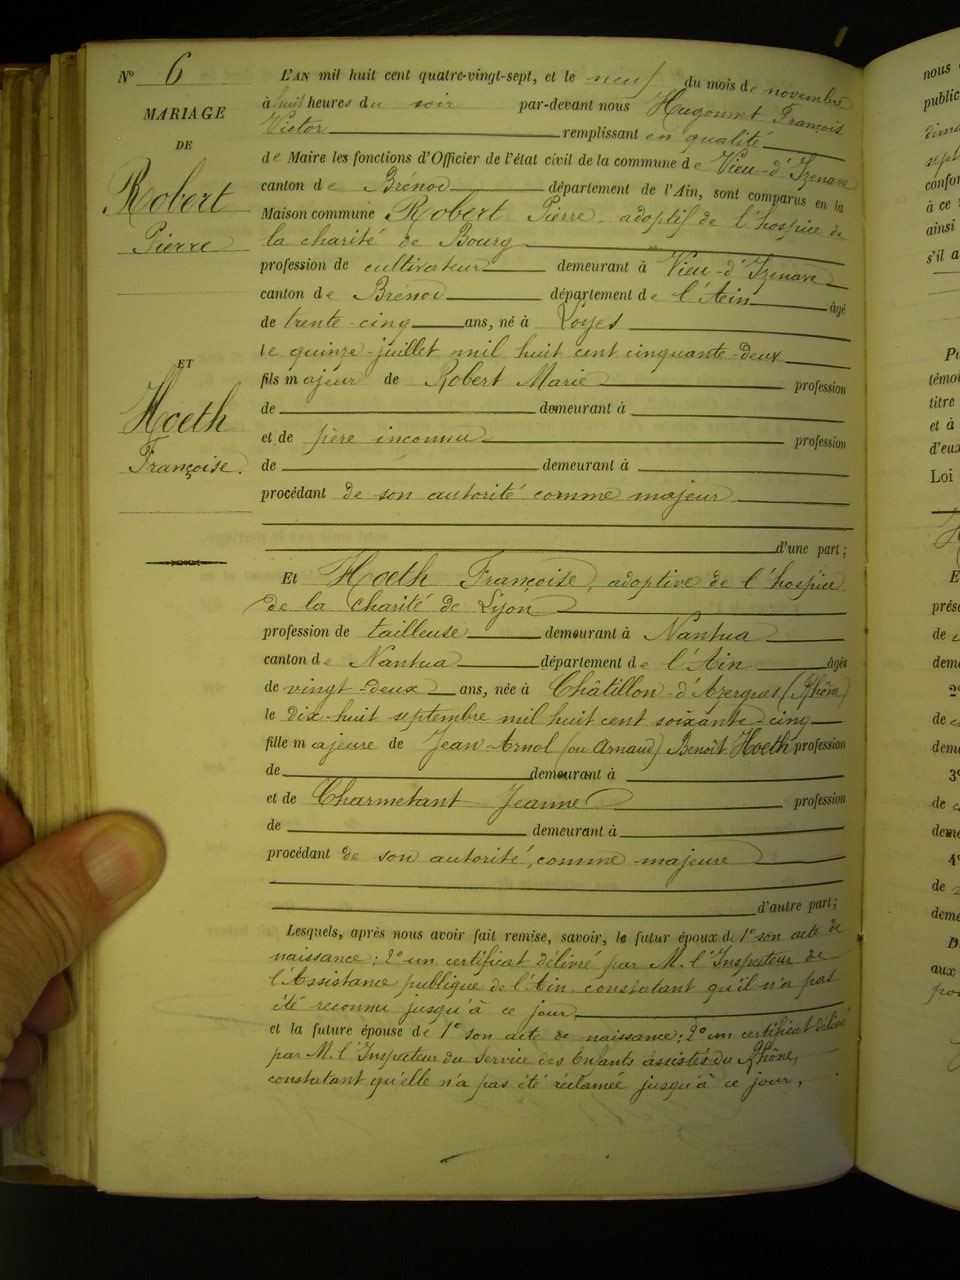 N° 6
MARIAGE
DE
Robert
Pierre
ET
Hoeth
Françoise.
L'AN mil huit cent quatre-vingt-sept, et le neuf du mois de novembre
à huit heures du soir par-devant nous Hugonnet François
Victor remplissant en qualité
de Maire les fonctions d'Officier de l'état civil de la commune de Vieu-d'Izenave
canton de Brénod département de l'Ain, sont comparus en la
Maison commune Robert Pierre, adoptif de l'hospice de
la charité de Bourg
profession de cultivateur demeurant à Vieu-d'Izenave
canton de Brénod département de l'Ain âgé
de trente-cinq ans, né à Loyes
le quinze juillet mil huit cent cinquante-deux
fils majeur de Robert Marie profession
de demeurant à
et de père inconnu profession
de demeurant à
procédant de son autorité comme majeur
d'une part;
Et Hoeth Françoise, adoptive de l'hospice
de la charité de Lyon
profession de tailleuse demeurant à Nantua
canton de Nantua département de l'Ain âgée
de vingt-deux ans, née à Châtillon-d'Azergues (Rhône)
le dix-huit septembre mil huit cent soixante-cinq
fille majeure de Jean Arnol (ou Arnaud) Benoît Hoeth profession
de demeurant à
et de Charmetant Jeanne profession
de demeurant à
procédant de son autorité, comme majeure
d'autre part;
Lesquels, après nous avoir fait remise, savoir, le futur époux de 1° son acte de
naissance; 2° un certificat délivré par M. l'Inspecteur de
l'Assistance publique de l'Ain, constatant qu'il n'a pas
été reconnu jusqu'à ce jour
et la future épouse de 1° son acte de naissance; 2° un certificat délivré
par M. l'Inspecteur du Service des Enfants assistés du Rhône,
constatant qu'elle n'a pas été réclamée jusqu'à ce jour,
nous
public
dima
sept
confor
à ce
ainsi
s'il a
témoi
titre
et à
d'eux
Loi
prése
de
dem
2°
de
dem
3°
de
dem
4°
de
dem
aux